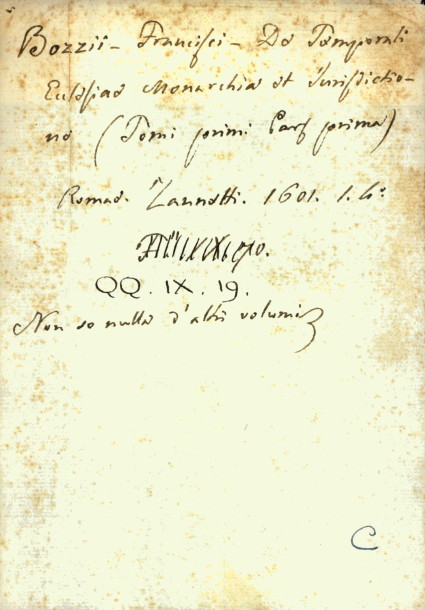 Bozzii - Francisci - De Temporali
Ecclesiae Monarchia et Jurisdictio-
ne (Tomi primi Pars prima)
Romae. Zannetti. 1601. 1. 4°
QQ. IX. 19.
Non so nulla d'altri volumi
C